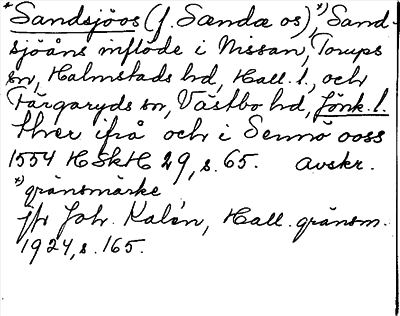 *Sandsjöos (f. Sandæ os), *) Sand-
sjöåns inflöde i Nissan, Torups
sn, Halmstads hd, Hall. l., och
Färgaryds sn, Västbo hd, Jönk. l.
thær ifrå och i Sennö ooss
1554 HSkH 29, s. 65. avskr.
*) gränsmärke
jfr Joh. Kalén, Hall. gränsm.
1924, s. 165.